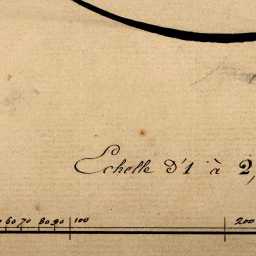 Echelle d'1 à 2,
60 70 80 90 100 200